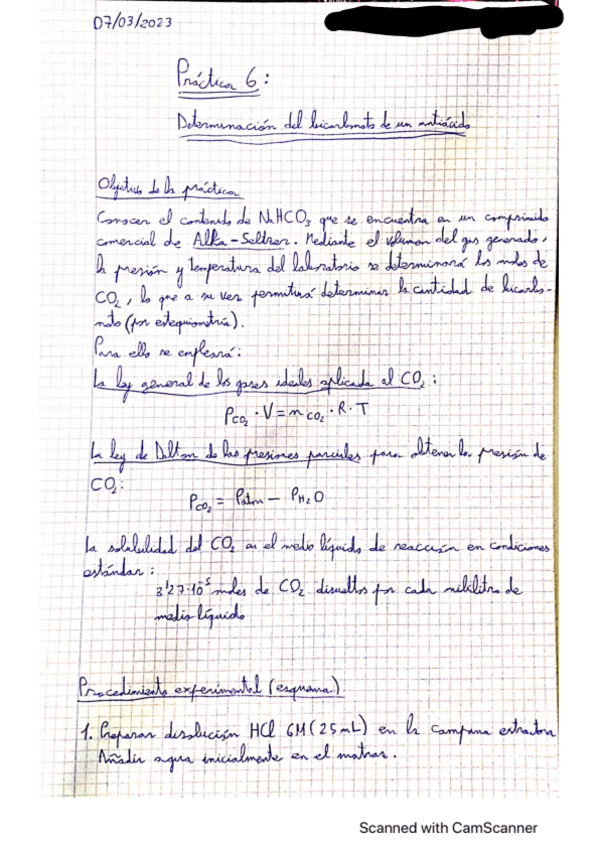 07/03/2023
Práctica 6:
Determinación del bicarbonato de un antiácido
Objetivo de la práctica
Conocer el contenido de NaHCO3 que se encuentra en un comprimido
comercial de Alka-Seltzer. Mediante el volumen del gas generado,
la presión y temperatura del laboratorio se determinará los moles de
CO2, lo que a su vez permitirá determinar la cantidad de bicarbo-
nato (por estequiometría).
Para ello se empleará:
La ley general de los gases ideales aplicada al CO2:
PCO2 · V = nCO2 · R · T
La ley de Dalton de las presiones parciales para obtener la presión de
CO2:
PCO2 = Patm - PH2O
La solubilidad del CO2 en el medio líquido de reacción en condiciones
estándar:
3'27·10^-5 moles de CO2 disueltos por cada mililitro de
medio líquido
Procedimiento experimental (esquema)
1. Preparar disolución HCl 6M (25mL) en la campana extractora
Añadir agua inicialmente en el matraz.
Scanned with CamScanner